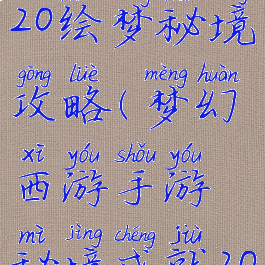 20绘梦秘境
gōng lüè mèng huàn
攻略(梦幻
xī yóu shǒu yóu
西游手游
mì jìng chéng jiù
秘境成就20